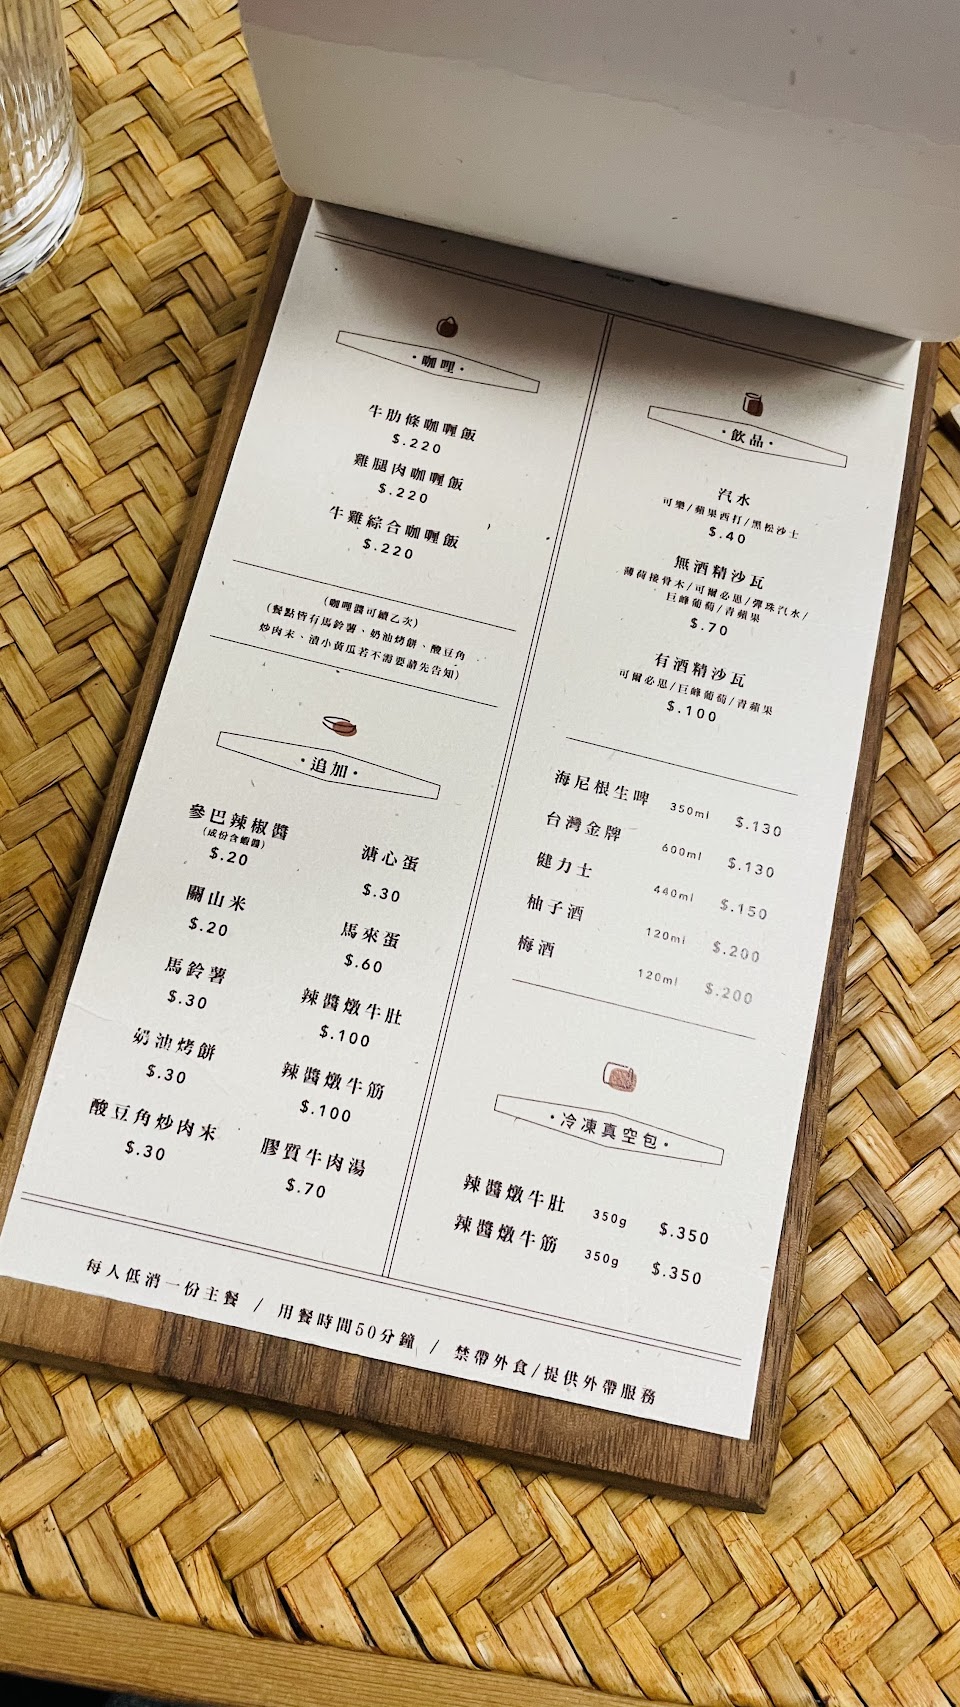 ·咖哩·
牛肋條咖喱飯
$.220
雞腿肉咖喱飯
$.220
牛雞綜合咖喱飯
$.220
(咖哩醬可續乙次)
(餐點皆有馬鈴薯、奶油烤餅、酸豆角
炒肉末、漬小黃瓜若不需要請先告知)
·追加·
參巴辣椒醬
(成份含蝦醬)
$.20
關山米
$.20
馬鈴薯
$.30
奶油烤餅
$.30
酸豆角炒肉末
$.30
溏心蛋
$.30
馬來蛋
$.60
辣醬燉牛肚
$.100
辣醬燉牛筋
$.100
膠質牛肉湯
$.70
·飲品·
汽水
可樂/蘋果西打/黑松沙士
$.40
無酒精沙瓦
薄荷接骨木/可爾必思/彈珠汽水/
巨峰葡萄/青蘋果
$.70
有酒精沙瓦
可爾必思/巨峰葡萄/青蘋果
$.100
海尼根生啤 350ml $.130
台灣金牌 600ml $.130
健力士 440ml $.150
柚子酒 120ml $.200
梅酒 120ml $.200
·冷凍真空包·
辣醬燉牛肚 350g $.350
辣醬燉牛筋 350g $.350
每人低消一份主餐 / 用餐時間50分鐘 / 禁帶外食/提供外帶服務